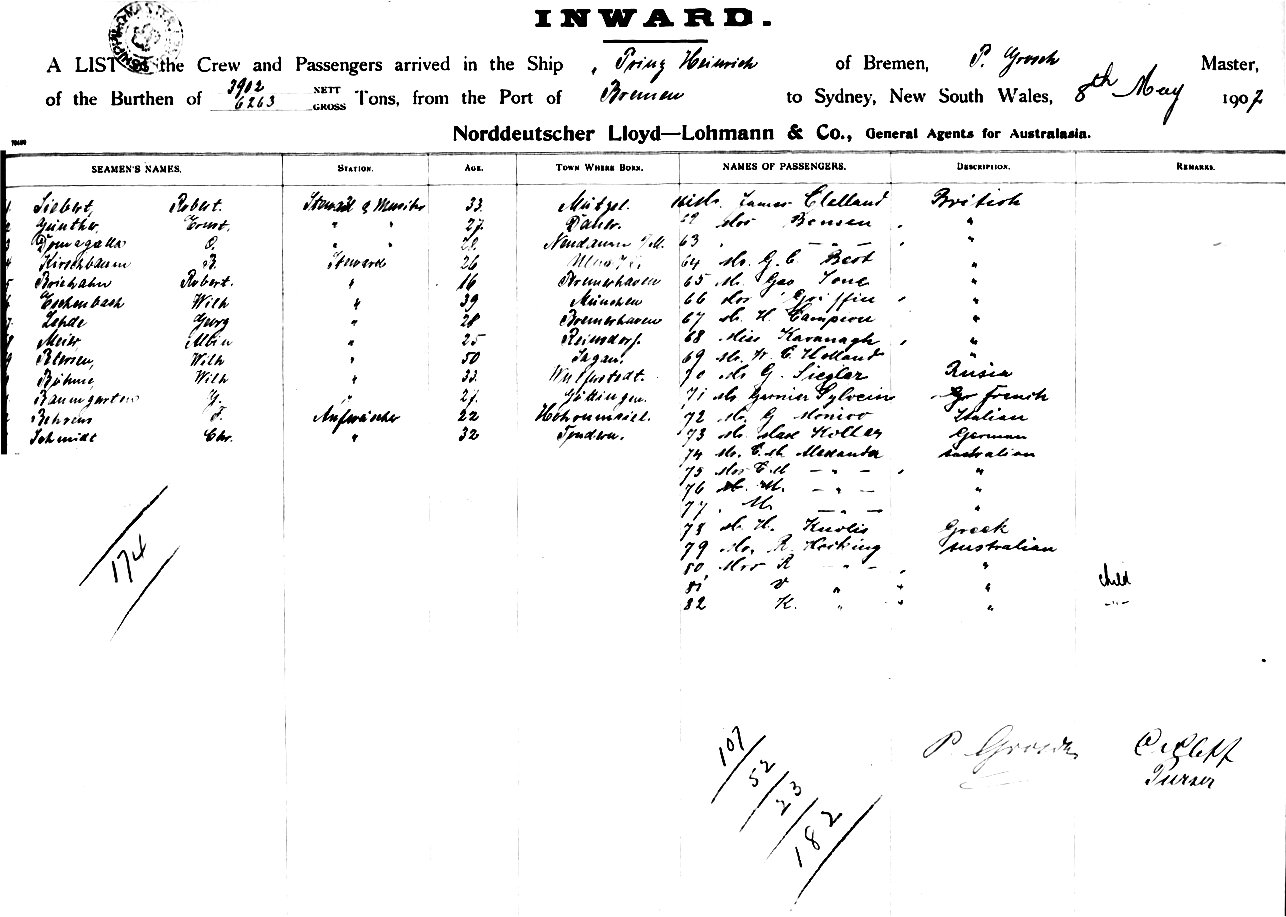 INWARD.
A LIST of the Crew and Passengers arrived in the Ship Prinz Heinrich of Bremen, P. Grosch Master,
of the Burthen of 3902 NETT 6263 GROSS Tons, from the Port of Bremen to Sydney, New South Wales, 8th May 1907
Norddeutscher Lloyd—Lohmann & Co., General Agents for Australasia.
SEAMEN'S NAMES. STATION. AGE. TOWN WHERE BORN. NAMES OF PASSENGERS. DESCRIPTION. REMARKS.
Siebert, Robert. Steward & Musiker 33 James Clelland British
Günther, Ernst. " " 27 Mrs Bensen "
Domagalla O. " " 63 " — "
4 Kirschbaum B. Steward 26 64 Mr. G. C. Best "
5 Robert. " 16 Bremerhaven 65 Mr. Geo "
6 Eschenbach Wilh " 39 München 66 Mrs Griffin "
7 Georg " 28 Bremerhaven 67 Mr. H. Campion "
8 Meier, Albin " 25 Reinsdorf. 68 Miss Kavanagh "
9 Petersen, Wilh " 50 Sagan. 69 Mr. W. E. Holland "
Böhme, Wilh " 33 70 Mr G. Siegler Rusia
Baumgarten G. " 27. Göttingen. 71 Mr Sylvein French
Behrens F. Aufwäscher 22 72 Mr. G. Italian
Schmidt Chr. " 32 Tondern. 73 Mr. Max German
74 Mr. E. M. Alexander Australian
75 Mrs E. M — " — "
76 M. — " — "
77 M. — " — "
78 Mr H. Greek
79 Mr. R. Hocking Australian
80 Mrs R — " — "
81 V " " " child
82 K. " " " — " —
174
107
52
23
182
P. Grosch
Purser